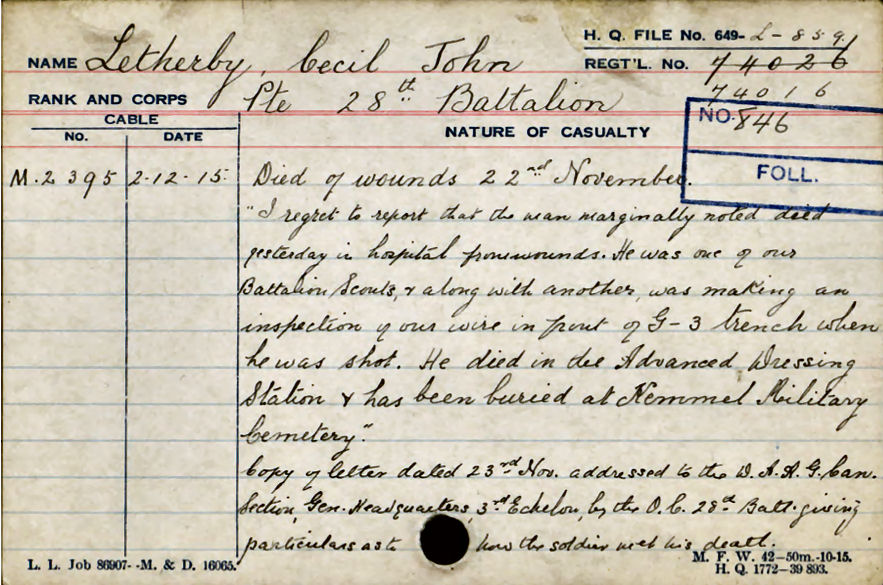 H. Q. FILE No. 649- L-859.
NAME Letherby, Cecil John
REGT'L. No. 74026
74016
RANK AND CORPS Pte 28th Battalion
NO. 846
FOLL.
CABLE
No. DATE
NATURE OF CASUALTY
M.2395 2-12-15. Died of wounds 22nd November.
"I regret to report that the man marginally noted died
yesterday in hospital from wounds. He was one of our
Battalion Scouts, & along with another, was making an
inspection of our wire in front of G-3 trench when
he was shot. He died in the Advanced Dressing
Station & has been buried at Kemmel Military
Cemetery."
Copy of letter dated 23rd Nov. addressed to the D.A.A.G. Can.
Section, Gen. Headquarters, 3rd Echelon, by the O.C. 28th Batt. giving
particulars as to how the soldier met his death.
L. L. Job 86907- -M. & D. 16065.
M. F. W. 42-50m.-10-15.
H. Q. 1772-39 893.